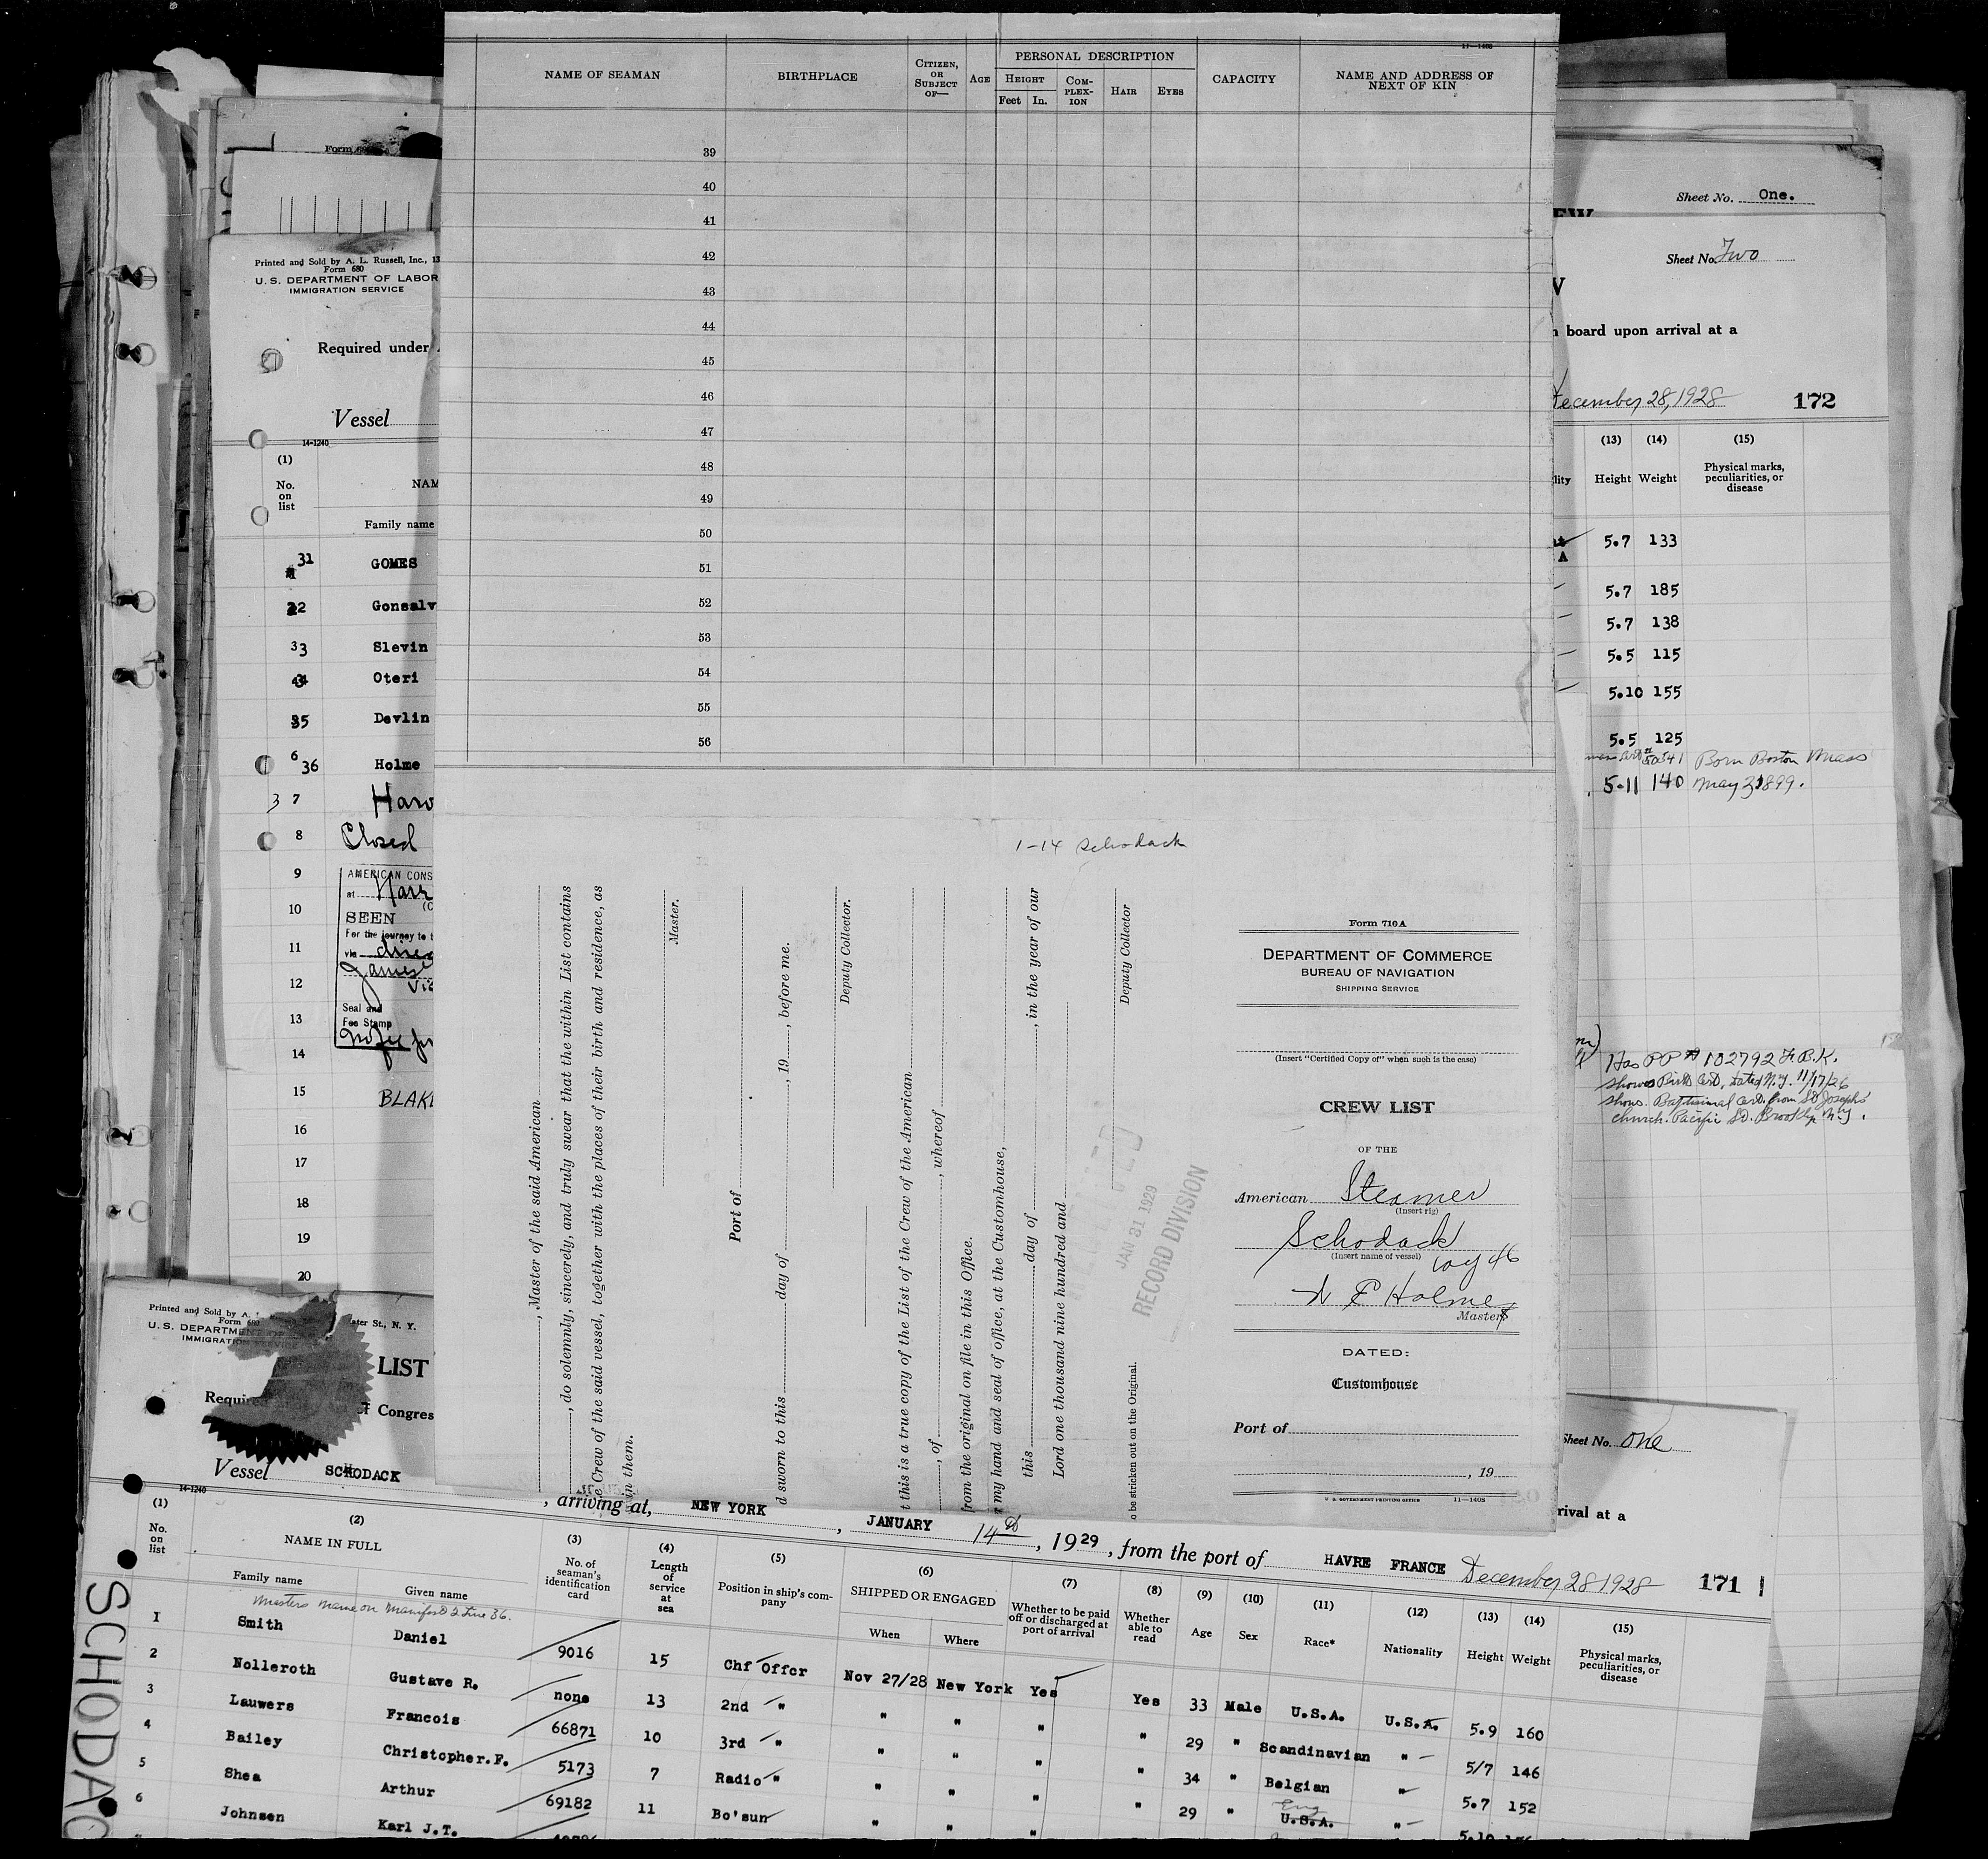 11—1408
NAME OF SEAMAN
BIRTHPLACE
CITIZEN, OR SUBJECT OF—
AGE
PERSONAL DESCRIPTION
HEIGHT
Feet In.
COM-PLEX-ION
HAIR
EYES
CAPACITY
NAME AND ADDRESS OF NEXT OF KIN
39
40
41
42
43
44
45
46
47
48
49
50
51
52
53
54
55
56
1-14 Schodack
, Master of the said American
, do solemnly, sincerely, and truly swear that the within List contains
Crew of the said vessel, together with the places of their birth and residence, as
in them.
Master.
Port of
sworn to this day of , 19 , before me.
Deputy Collector.
this is a true copy of the List of the Crew of the American
, of , whereof
from the original on file in this Office.
my hand and seal of office, at the Customhouse,
this day of , in the year of our
Lord one thousand nine hundred and
Deputy Collector
be stricken out on the Original.
JAN 31 1929
RECORD DIVISION
Form 710A
DEPARTMENT OF COMMERCE
BUREAU OF NAVIGATION
SHIPPING SERVICE
(Insert "Certified Copy of" when such is the case)
CREW LIST
OF THE
American Steamer
(Insert rig)
Schodack
(Insert name of vessel)
Voy 46
N E Holmes
Master
DATED:
Customhouse
Port of
, 19
U. S. GOVERNMENT PRINTING OFFICE 11—1408
Form
Printed and Sold by A. L. Russell, Inc., 13
Form 680
U. S. DEPARTMENT OF LABOR
IMMIGRATION SERVICE
Required under
Vessel
14-1240
(1)
No. on list
NAM
Family name
31 GOMES
32 Gonsalv
33 Slevin
34 Oteri
35 Devlin
6 36 Holme
3 7 Haro
8 Closed
9
10
11
12
13
14
15 BLAK
16
17
18
19
20
AMERICAN CONS
at Havr
SEEN
For the journey to t
via direc
James
Vic
Seal and
Fee Stamp
No fee
Sheet No. One.
Sheet No. Two
board upon arrival at a
December 28, 1928 172
(13) (14) (15)
Height Weight Physical marks, peculiarities, or disease
5.7 133
5.7 185
5.7 138
5.5 115
5.10 155
5.5 125
Born Boston Mass
5-11 140 May 31 1899.
Has PP # 102792 F.B.K.
shows Birth Cert, dated N.Y. 11/17/26
shows. Baptismal cert. from St Josephs
church. Pacific St. Brooklyn N.Y.
Sheet No. One
rival at a
Printed and Sold by A.
Form 680
ater St., N. Y.
U. S. DEPARTM
IMMIGRATION SERVICE
LIST
Requir
of Congres
Vessel SCHODACK , arriving at, NEW YORK , JANUARY 14th , 1929 , from the port of HAVRE FRANCE December 28 1928 171
14-1240
(1) No. on list
(2) NAME IN FULL
Family name Given name
(3) No. of seaman's identification card
(4) Length of service at sea
(5) Position in ship's company
(6) SHIPPED OR ENGAGED
When Where
(7) Whether to be paid off or discharged at port of arrival
(8) Whether able to read
(9) Age
(10) Sex
(11) Race*
(12) Nationality
(13) Height
(14) Weight
(15) Physical marks, peculiarities, or disease
Masters name on Manifest 2 Line 36.
1 Smith Daniel 9016 15 Chf Offcr Nov 27/28 New York Yes Yes 33 Male U.S.A. U.S.A. 5.9 160
2 Nolleroth Gustave R. none 13 2nd " " " " " 29 " Scandinavian " 5/7 146
3 Lauwers Francois 66871 10 3rd " " " " " 34 " Belgian " 5.7 152
4 Bailey Christopher.F. 5173 7 Radio " " " " " 29 " Eng U.S.A. " 5.10
5 Shea Arthur 69182 11 Bo'sun " " "
6 Johnsen Karl J.T.
SCHODAC